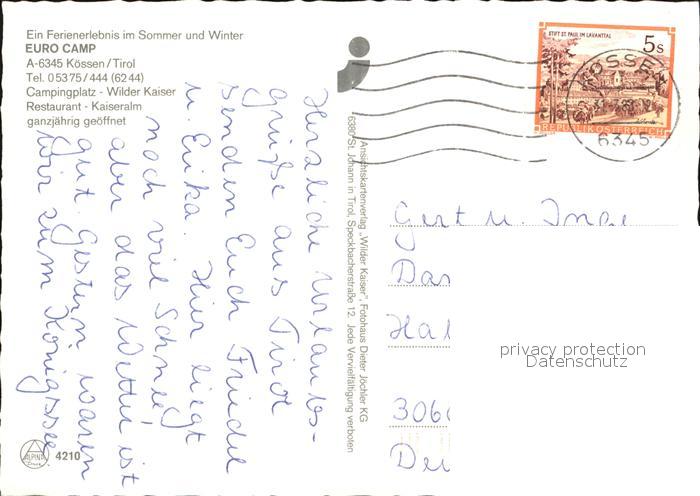 Ein Ferienerlebnis im Sommer und Winter
EURO CAMP
A-6345 Kössen/Tirol
Tel. 05375/444 (6244)
Campingplatz - Wilder Kaiser
Restaurant - Kaiseralm
ganzjährig geöffnet
Herzliche Urlaubs-
grüße aus Tirol
senden Euch Friedel
u. Erika. Hier liegt
noch viel Schnee
aber das Wetter ist
gut. Gestern waren
wir zum Königssee
ALPINA
4210
Ansichtskartenverlag „Wilder Kaiser", Fotohaus Dieter Jöchler KG
6380 St. Johann in Tirol, Speckbacherstraße 12. Jede Vervielfältigung verboten
STIFT ST. PAUL IM LAVANTTAL
5s
REPUBLIK ÖSTERREICH
KÖSSEN
6345
Gert u. Inge
Da
Ha
306
De
privacy protection
Datenschutz